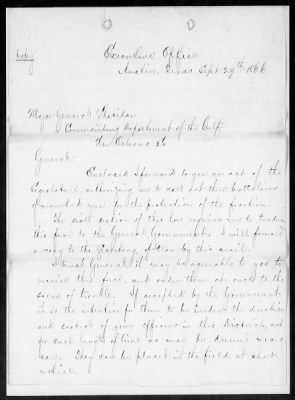 Copy
Executive Office
Austin, Texas Sept 29th 1866
Major General Sheridan
Commanding Department of the Gulf
New Orleans La
General:
Enclosed I forward to you an act of the
Legislature authorizing me to call out three battalions
of mounted men for the protection of the frontier.
The sixth section of this law requires me to tender
this force to the General Government. I will forward
a copy to the Secretary of War by this mail.
I trust General it may be agreeable to you to
receive this force, and order them at once to the
scene of trouble. If accepted by the Government
it is the intention for them to be under the direction
and control of your officers in this District, and
for such length of time as may be deemed neces-
sary. They can be placed in the field at short
notice.